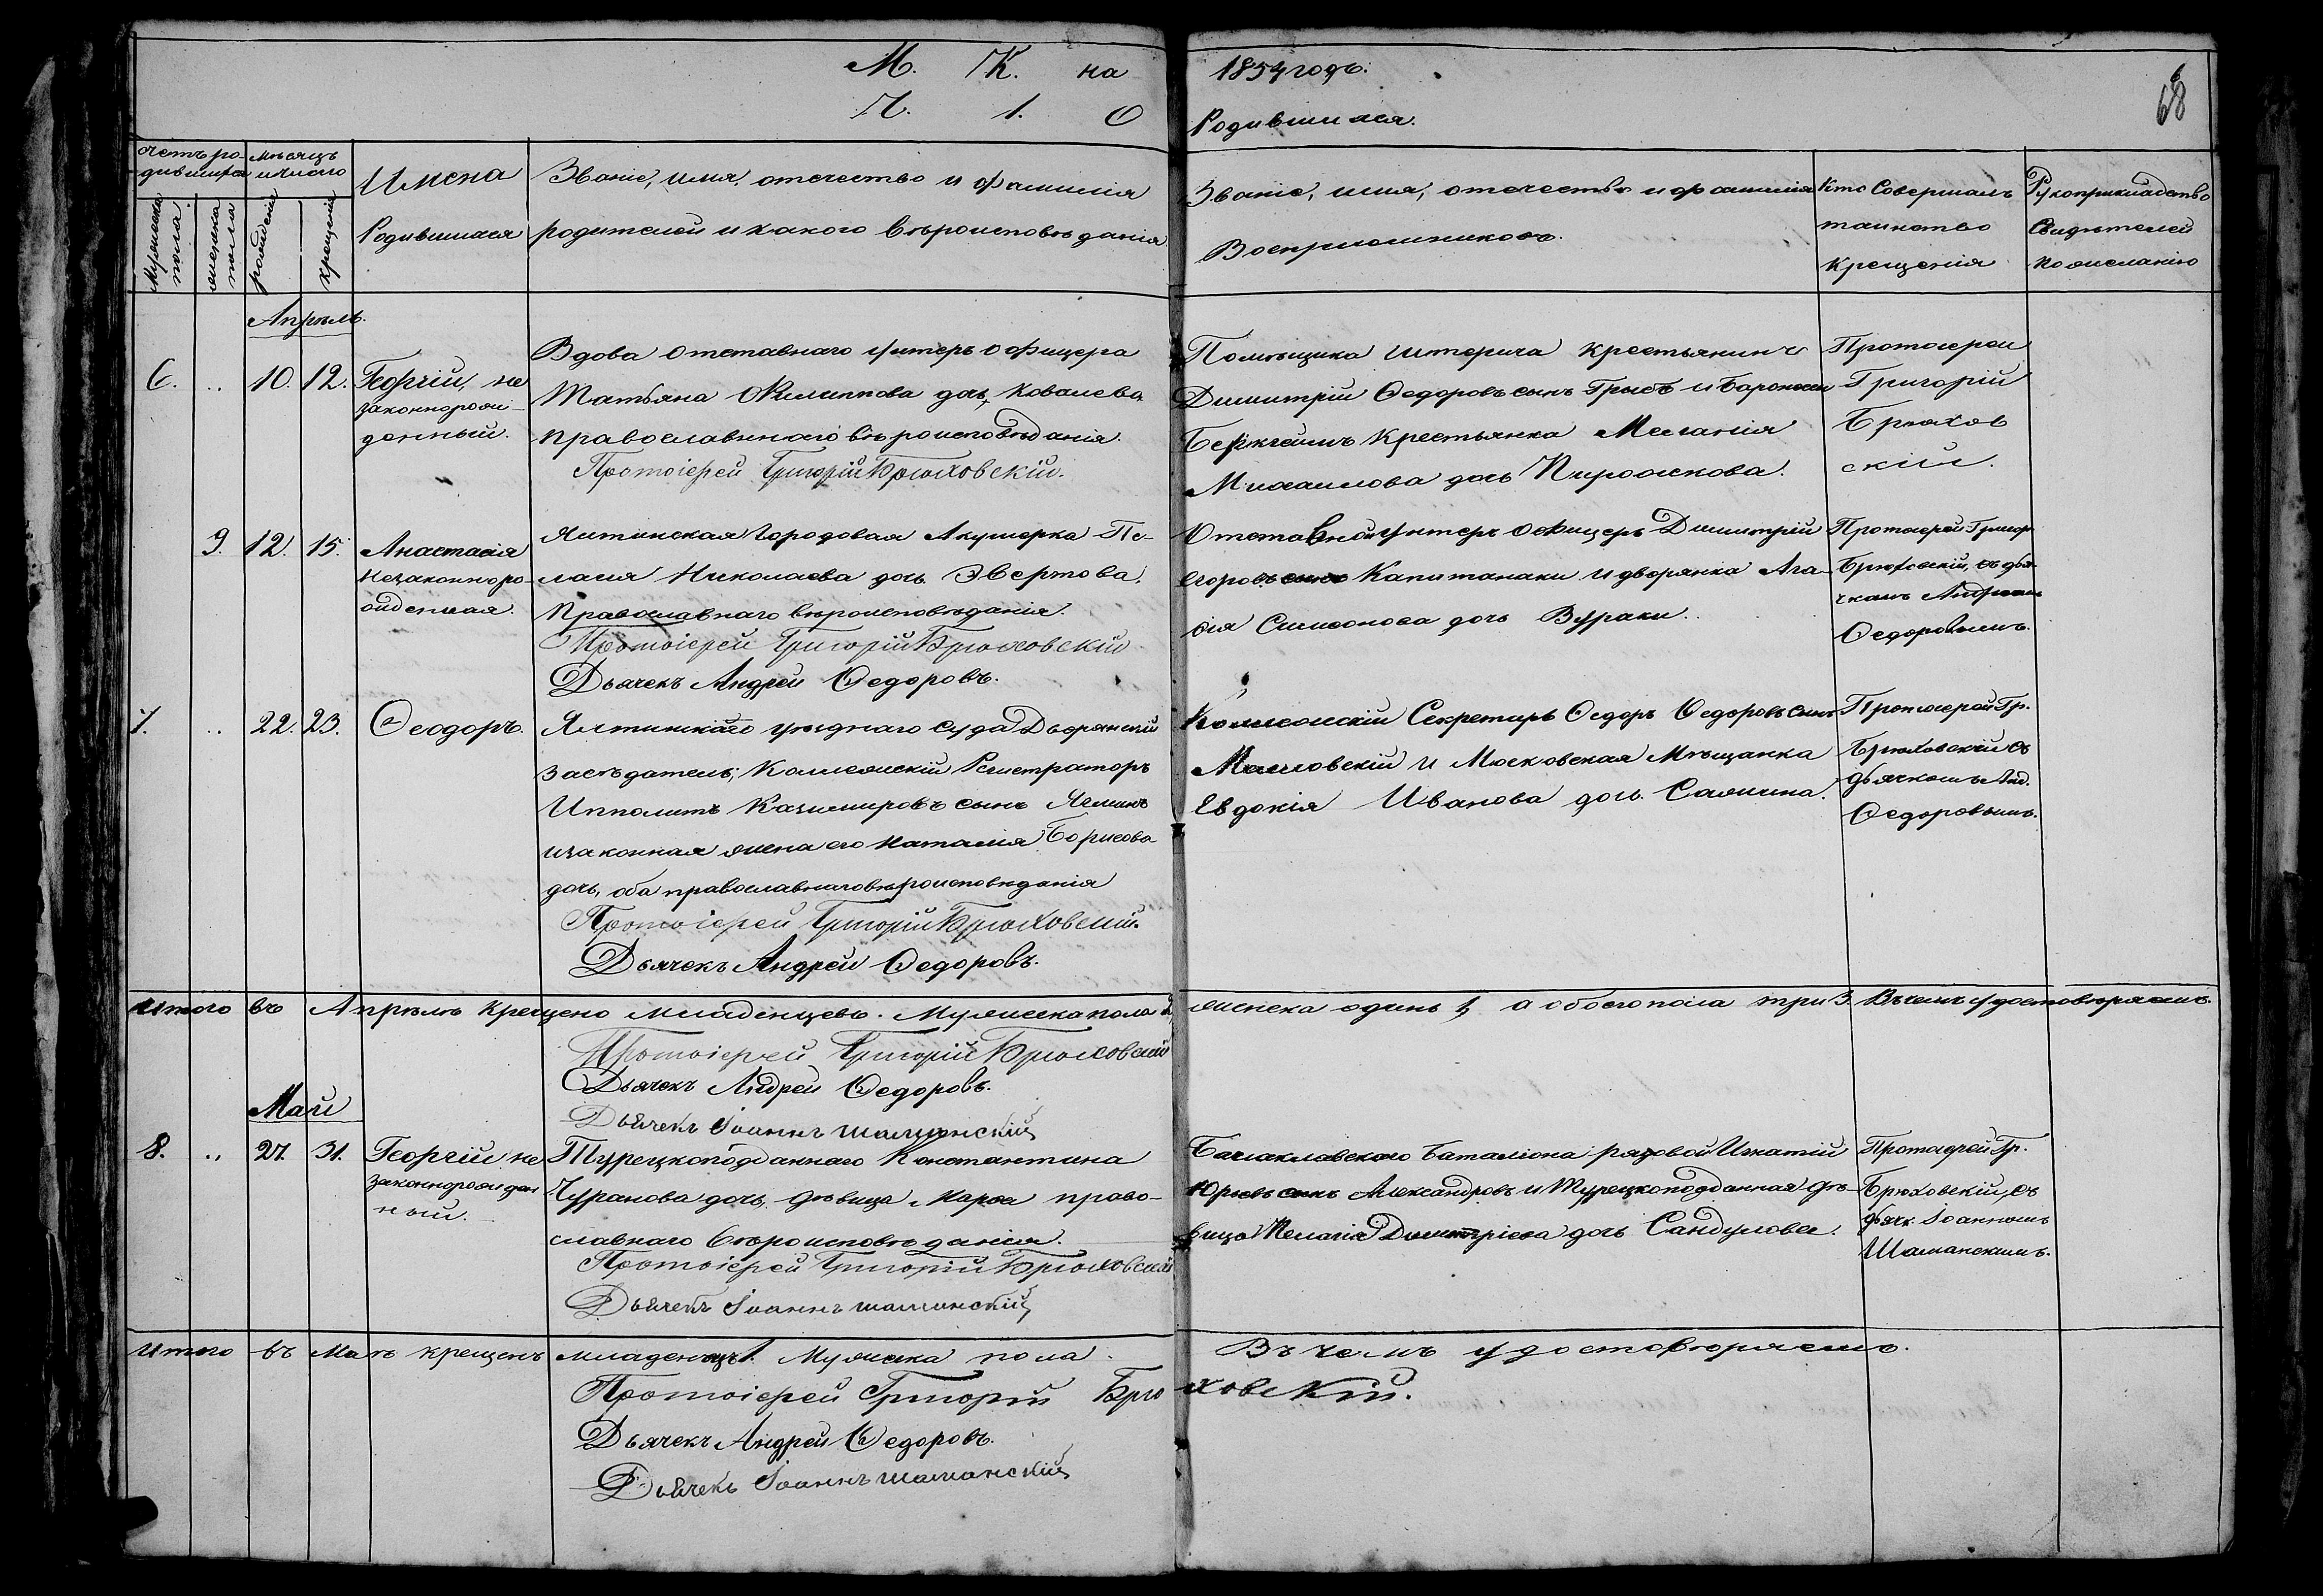 М. К. на 1854 годъ.
Ч. 1. О Родившихся.
68
Счетъ ро-
дившихся
Мужеска пола.
женска пола
Мѣсяцъ
и число
рожденія
крещенія
Имена
Родившихся
Званіе, имя, отечество и фамилія
родителей и какого вѣроисповѣданія
Званіе, имя, отечество и фамилія
Воспріемниковъ.
Кто Совершалъ
таинство
Крещенія
Рукоприкладство
Свидѣтелей
по желанію
Апрѣль.
6. .. 10. 12.
Георгій, не
законнорож-
денный.
Вдова отставнаго унтеръ офицера
Татьяна Филиппова дочь Ковалева
православнаго вѣроисповѣданія.
Протоіерей Григорій Брюховскій.
Помѣщика Штерича крестьянинъ
Димитрій Ѳедоровъ сынъ Грибъ и Баронессы
Беркгеймъ крестьянка Меланія
Михаилова дочь Пирожкова.
Протоіерей
Григорій
Брюхов
скій.
9. 12. 15.
Анастасія
Незаконноро-
жденная.
Ялтинская городовая Акушерка Пе-
лагія Николаева дочь Эвертова,
Православнаго вѣроисповѣданія.
Протоіерей Григорій Брюховскій
Дьячекъ Андрей Ѳедоровъ.
Отставной унтеръ офицеръ Димитрій
Егоровъ сынъ Капитанаки и дворянка Ага-
ѳія Симеонова дочь Вураки.
Протоіерей Григор
Брюховскій, съ дья-
чкомъ Андреемъ
Ѳедоровымъ.
7. .. 22. 23.
Ѳеодоръ.
Ялтинскаго уѣзднаго суда Дворянскій
засѣдатель, Коллежскій Регистраторъ
Ипполитъ Казимировъ сынъ
и законная жена его Наталія Борисова
дочь, оба православнаго вѣроисповѣданія
Протоіерей Григорій Брюховскій.
Дьячекъ Андрей Ѳедоровъ.
Коллежскій Секретарь Ѳедоръ Ѳедоровъ сынъ
и Московская Мѣщанка
Евдокія Иванова дочь
Протоіерей Гр.
Брюховскій съ
дьячкомъ Анд.
Ѳедоровымъ.
Итого въ Апрѣлѣ крещено младенцевъ. Мужеска пола 2, женска одинъ 1, а обоего пола три 3. Въ чемъ удостовѣряемъ.
Протоіерей Григорій Брюховскій
Дьячекъ Андрей Ѳедоровъ.
Дьячекъ Іоаннъ Шаманскій
Май
8. .. 27. 31.
Георгій не
законнорожден
ный.
Турецкоподданнаго Константина
Чуранова дочь дѣвица Марѳа право-
славнаго вѣроисповѣданія.
Протоіерей Григорій Брюховскій
Дьячекъ Іоаннъ Шаманскій
Балаклавскаго баталіона рядовой Игнатій
Юрьевъ сынъ Александровъ и Турецкоподданная дѣ-
вица Пелагія Димитріева дочь Сандулова.
Протоіерей Гр.
Брюховскій, съ
дьячк. Іоанномъ
Шаманскимъ.
Итого въ Маѣ крещенъ младенецъ 1. Мужеска пола. Въ чемъ удостовѣряемъ.
Протоіерей Григорій Брюховскій.
Дьячекъ Андрей Ѳедоровъ.
Дьячекъ Іоаннъ Шаманскій